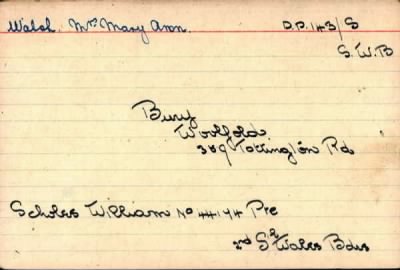 Walsh. Mrs Mary Ann. D.P. 143/S
S.W.B
Bury
Woolfold
389 Tottington Rd
Scholes William No 44194 Pte
2nd Sth Wales Bdrs